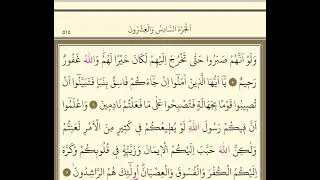 الجُزْءُ السَّادِسُ وَالعِشْرُونَ ٥١٥
وَلَوْ أَنَّهُمْ صَبَرُوا حَتَّى تَخْرُجَ إِلَيْهِمْ لَكَانَ خَيْرًا لَهُمْ وَاللّٰهُ غَفُورٌ
رَحِيمٌ ٥ يَا أَيُّهَا الَّذِينَ آمَنُوا إِنْ جَاءَكُمْ فَاسِقٌ بِنَبَإٍ فَتَبَيَّنُوا أَنْ
تُصِيبُوا قَوْمًا بِجَهَالَةٍ فَتُصْبِحُوا عَلَى مَا فَعَلْتُمْ نَادِمِينَ ٦ وَاعْلَمُوا
أَنَّ فِيكُمْ رَسُولَ اللّٰهِ لَوْ يُطِيعُكُمْ فِي كَثِيرٍ مِنَ الْأَمْرِ لَعَنِتُّمْ
وَلَكِنَّ اللّٰهَ حَبَّبَ إِلَيْكُمُ الْإِيمَانَ وَزَيَّنَهُ فِي قُلُوبِكُمْ وَكَرَّهَ
إِلَيْكُمُ الْكُفْرَ وَالْفُسُوقَ وَالْعِصْيَانَ أُولَئِكَ هُمُ الرَّاشِدُونَ ٧